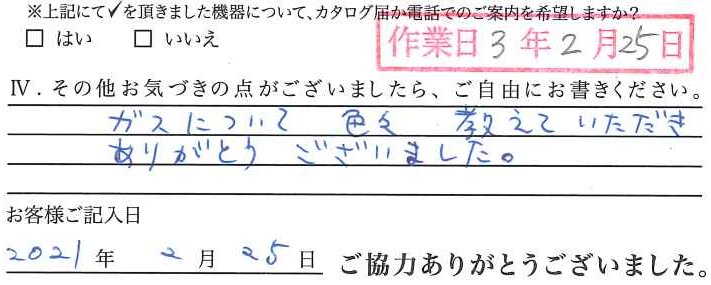 ※上記にて✓を頂きました機器について、カタログ届か電話でのご案内を希望しますか？
□ はい　□ いいえ
作業日 3 年 2 月 25 日
Ⅳ．その他お気づきの点がございましたら、ご自由にお書きください。
ガスについて 色々 教えていただき
ありがとう ございました。
お客様ご記入日
2021 年 2 月 25 日 ご協力ありがとうございました。